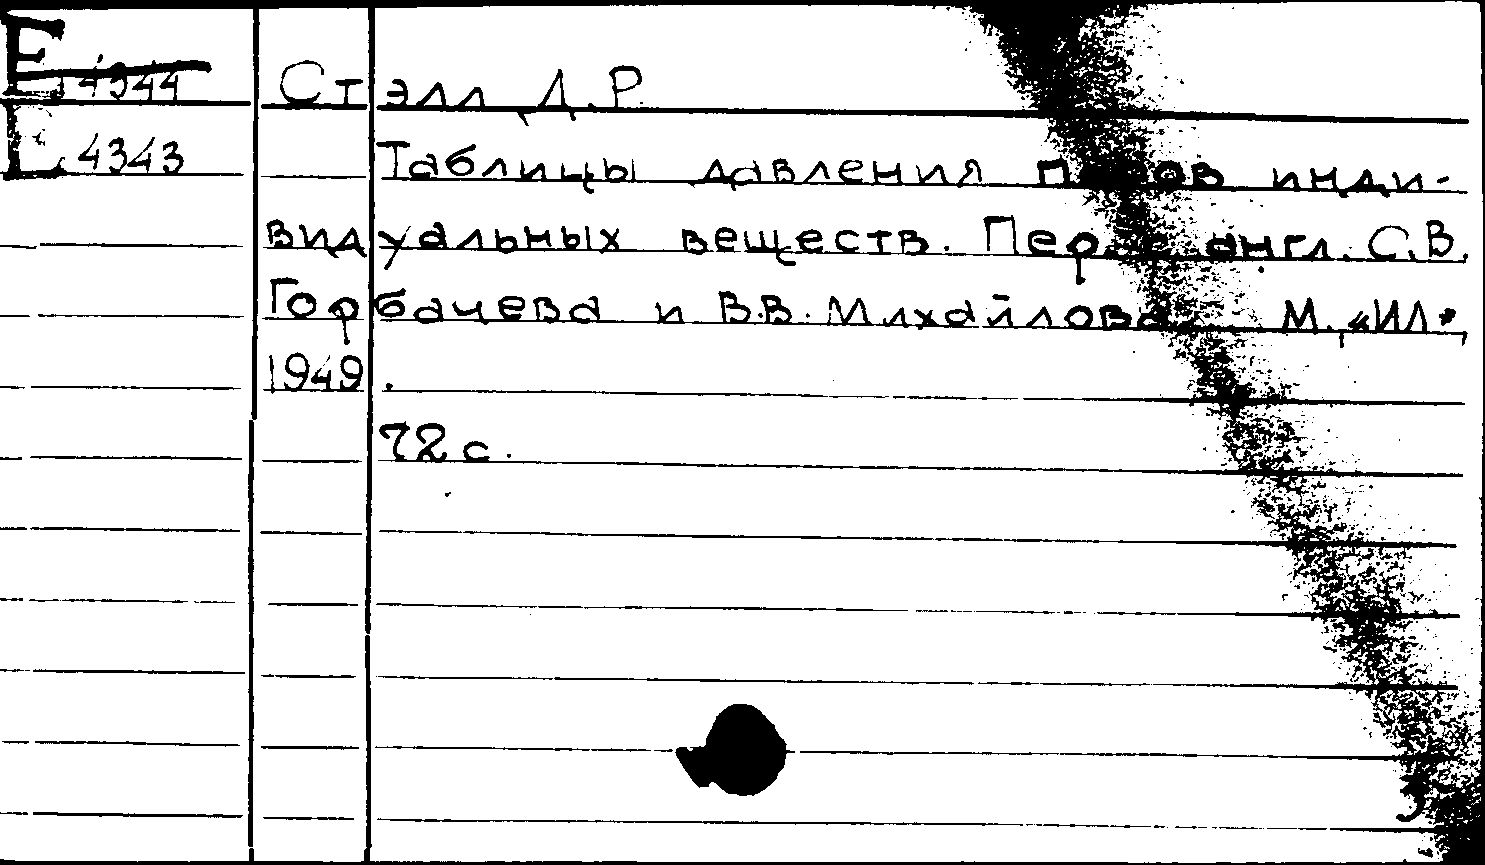 Е 4344 Стэлл Д.Р.
Е 4343 Таблицы давления паров инди-
видуальных веществ. Пер. с англ. С.В.
Горбачева и В.В. Михайлова. М., «ИЛ»,
1949.
72 с.